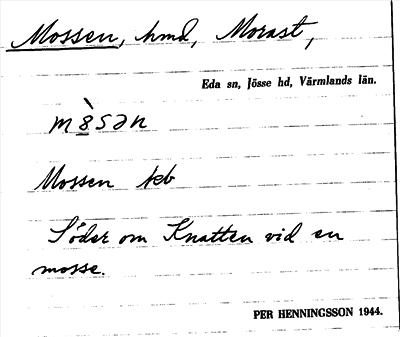 Mossen, hmd, Morast,
Eda sn, Jösse hd, Värmlands län.
m8̀sən
Mossen kb
Söder om Knatten vid en
mosse.
PER HENNINGSSON 1944.